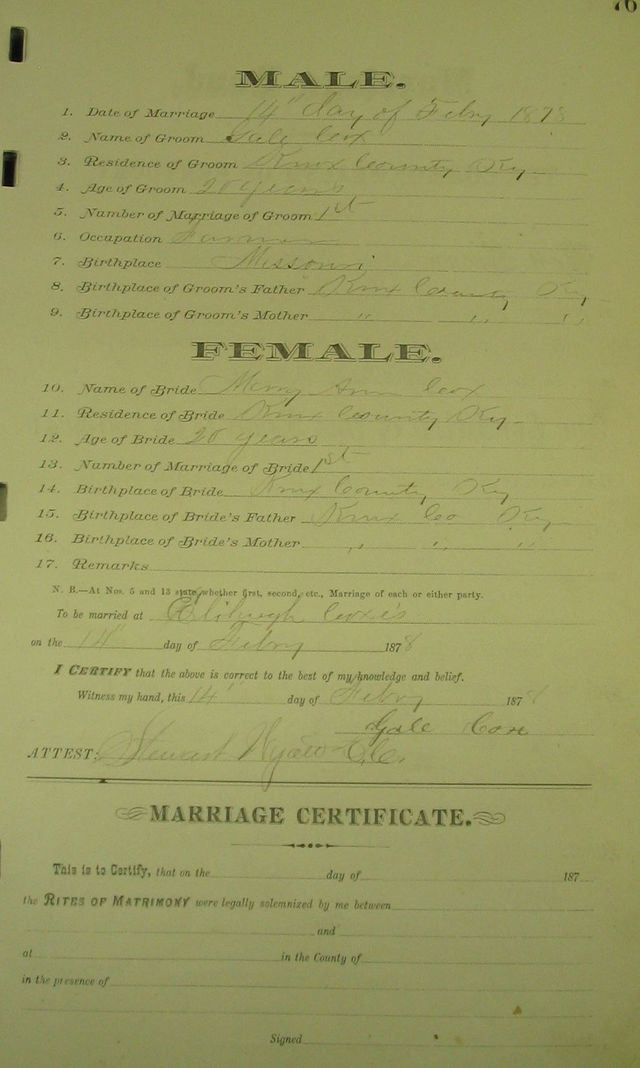 76
MALE.
1. Date of Marriage 14" day of Febry 1878
2. Name of Groom Gale Cox
3. Residence of Groom Knox County Ky
4. Age of Groom 20 years
5. Number of Marriage of Groom 1st
6. Occupation Farmer
7. Birthplace Missouri
8. Birthplace of Groom's Father Knox County Ky
9. Birthplace of Groom's Mother " " "
FEMALE.
10. Name of Bride Ann Cox
11. Residence of Bride Knox County Ky
12. Age of Bride 20 years
13. Number of Marriage of Bride 1st
14. Birthplace of Bride Knox County Ky
15. Birthplace of Bride's Father Knox Co Ky
16. Birthplace of Bride's Mother " " "
17. Remarks
N. B.—At Nos. 5 and 13 state whether first, second, etc., Marriage of each or either party.
To be married at
on the 14" day of Febry 1878
I CERTIFY that the above is correct to the best of my knowledge and belief.
Witness my hand, this 14" day of Febry 1878
Gale Cox
ATTEST: Stewart
MARRIAGE CERTIFICATE.
This is to Certify, that on the day of 187
the RITES OF MATRIMONY were legally solemnized by me between
and
at in the County of
in the presence of
Signed